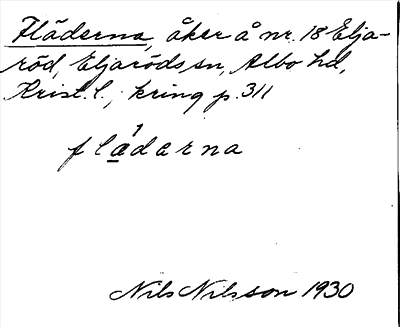 Fläderna, åker å nr. 18 Elja-
röd, Eljaröds sn, Albo hd,
Krist. l., kring p. 311
flàderna
Nils Nilsson 1930